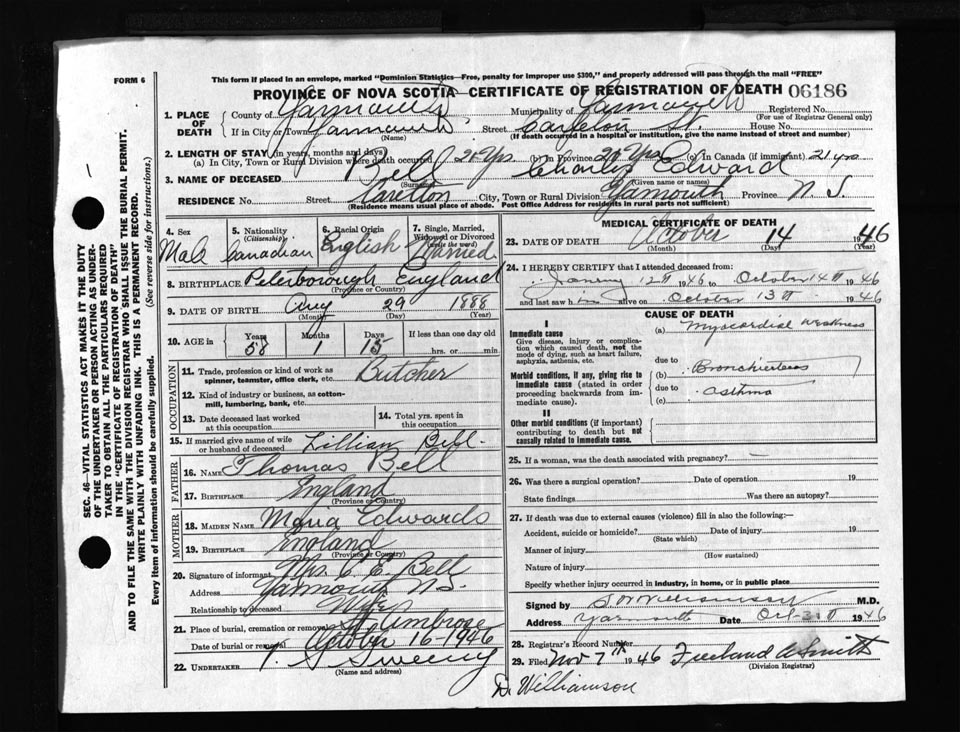 FORM 6
This form if placed in an envelope, marked "Dominion Statistics—Free, penalty for improper use $300," and properly addressed will pass through the mail "FREE"
PROVINCE OF NOVA SCOTIA—CERTIFICATE OF REGISTRATION OF DEATH 06186
SEC. 46—VITAL STATISTICS ACT MAKES IT THE DUTY OF THE UNDERTAKER OR PERSON ACTING AS UNDERTAKER TO OBTAIN ALL THE PARTICULARS REQUIRED IN THE "CERTIFICATE OF REGISTRATION OF DEATH" AND TO FILE THE SAME WITH THE DIVISION REGISTRAR WHO SHALL ISSUE THE BURIAL PERMIT.
WRITE PLAINLY WITH UNFADING INK. THIS IS A PERMANENT RECORD.
Every item of information should be carefully supplied. (See reverse side for instructions.)
1. PLACE OF DEATH
County of Yarmouth Municipality of Yarmouth Registered No.
(For use of Registrar General only)
If in City or Town Yarmouth Street Carleton St. House No.
(Name) (If death occurred in a hospital or institution, give the name instead of street and number)
2. LENGTH OF STAY (in years, months and days)
(a) In City, Town or Rural Division where death occurred 21 Yrs (b) In Province 21 Yrs (c) In Canada (if immigrant) 21 yrs
3. NAME OF DECEASED Bell Charles Edward
(Surname) (Given name or names)
RESIDENCE No. Street Carleton City, Town or Rural Division Yarmouth Province N.S.
(Residence means usual place of abode. Post Office Address for residents in rural parts not sufficient)
4. Sex Male
5. Nationality (Citizenship) Canadian
6. Racial Origin English
7. Single, Married, Widowed or Divorced (write the word) Married
8. BIRTHPLACE Peterborough England
(Province or Country)
9. DATE OF BIRTH Aug 29 1888
(Month) (Day) (Year)
10. AGE in Years 58 Months 1 Days 15 If less than one day old hrs. or min.
OCCUPATION
11. Trade, profession or kind of work as spinner, teamster, office clerk, etc. Butcher
12. Kind of industry or business, as cotton-mill, lumbering, bank, etc.
13. Date deceased last worked at this occupation
14. Total yrs. spent in this occupation
15. If married give name of wife or husband of deceased Lillian Bell
FATHER
16. NAME Thomas Bell
17. BIRTHPLACE England
(Province or Country)
MOTHER
18. MAIDEN NAME Maria Edwards
19. BIRTHPLACE England
(Province or Country)
20. Signature of informant Mrs. C E Bell
Address Yarmouth N.S.
Relationship to deceased Wife
21. Place of burial, cremation or removal St Ambrose
Date of burial or removal October 16-1946
22. UNDERTAKER Sweeny
(Name and address)
Dr Williamson
MEDICAL CERTIFICATE OF DEATH
23. DATE OF DEATH October 14 1946
(Month) (Day) (Year)
24. I HEREBY CERTIFY that I attended deceased from:
January 12th 1946 to October 14th 1946
and last saw him alive on October 13th 1946
CAUSE OF DEATH
I
Immediate cause
Give disease, injury or complication which caused death, not the mode of dying, such as heart failure, asphyxia, asthenia, etc.
(a) Myocardial weakness
due to
Morbid conditions, if any, giving rise to immediate cause (stated in order proceeding backwards from immediate cause).
(b) Bronchiectasis
due to asthma
(c)
II
Other morbid conditions (if important) contributing to death but not causally related to immediate cause.
25. If a woman, was the death associated with pregnancy?
26. Was there a surgical operation? Date of operation 19
State findings Was there an autopsy?
27. If death was due to external causes (violence) fill in also the following:—
Accident, suicide or homicide? Date of injury 19
(State which)
Manner of injury
(How sustained)
Nature of injury
Specify whether injury occurred in industry, in home, or in public place
Signed by Williamson M.D.
Address Yarmouth Date Oct 31st 1946
28. Registrar's Record Number
29. Filed Nov 7th 1946 Freeland A Smith
(Division Registrar)